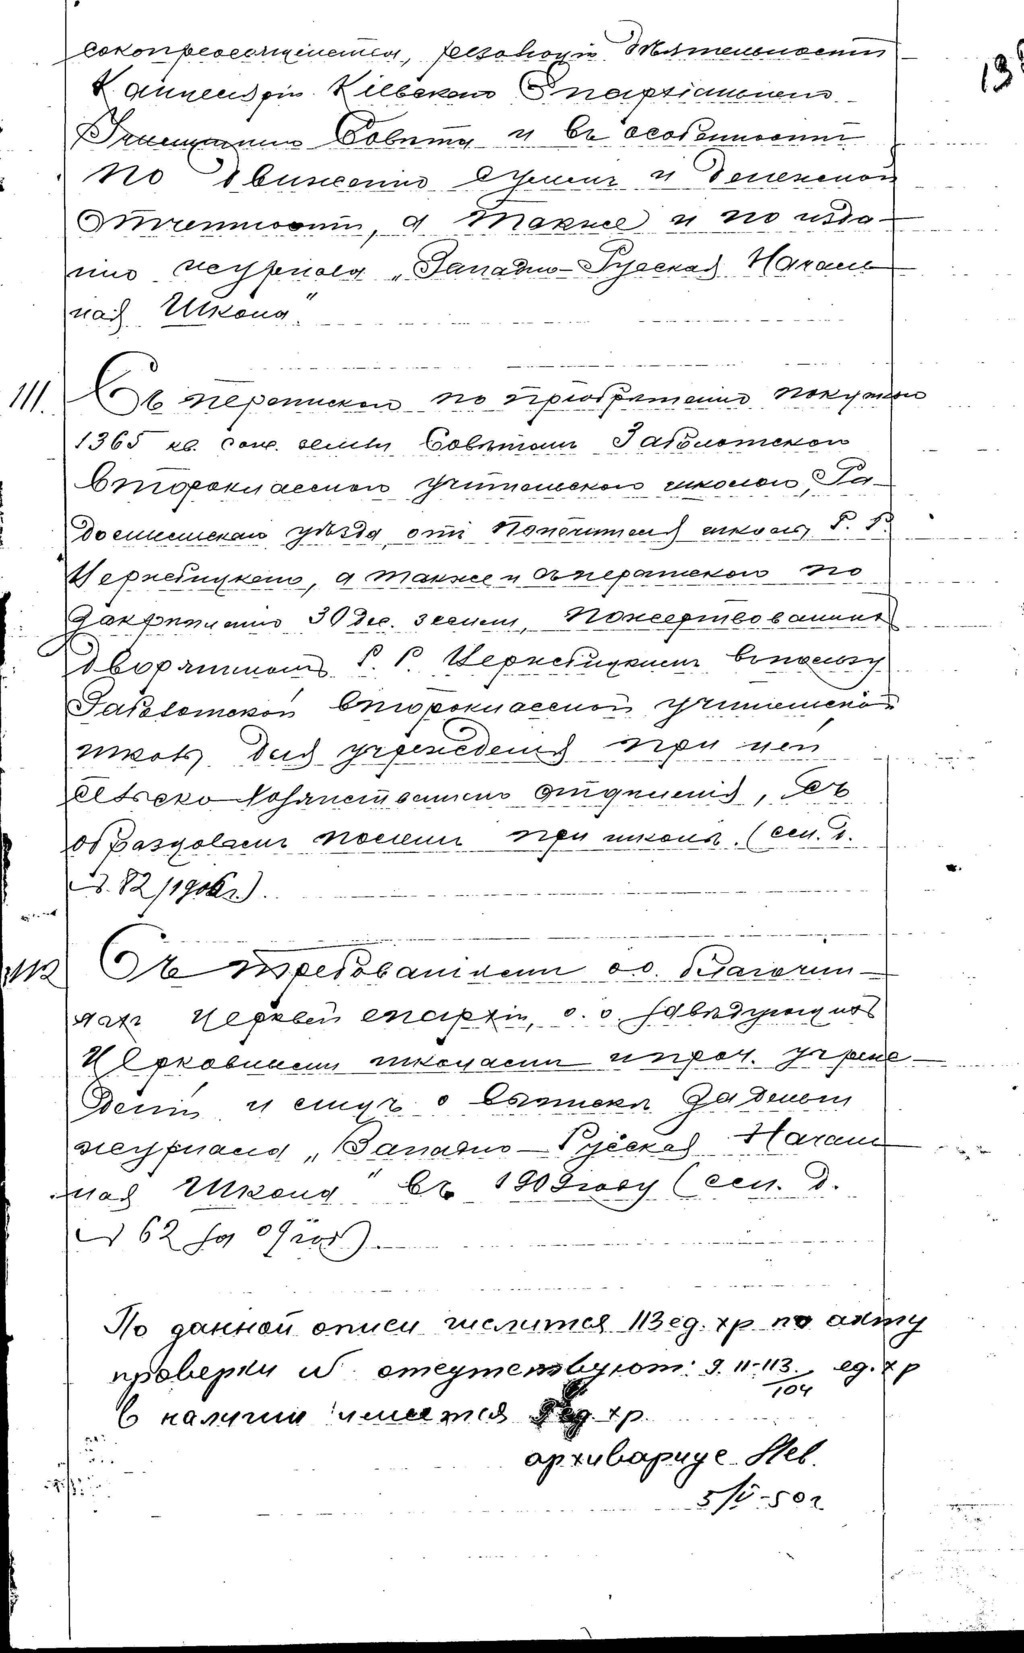 сокопреосвященства, ревизіи дѣятельности
Канцеляріи Кіевскаго Епархіальнаго
Училищнаго Совѣта и въ особенности
по движенію суммъ и денежной
отчетности, а также и по изда-
нію журнала „Западно-Русская Началь
ная Школа".
111. Съ перепиской по пріобрѣтенію покупкою
1365 кв. саж. земли Совѣтомъ Заболотской
второклассной учительской школы, Ра-
домысльскаго уѣзда, отъ Попечителя школы, Г. Г.
а также и съ перепиской по
закрѣпленію 30 дес. земли, пожертвованной
дворяниномъ Г. Г. въ пользу
Заболотской второклассной учительской
школы для учрежденія при ней
сельско-хозяйственнаго отдѣленія, съ
образцовымъ полемъ при школѣ. (см. д.
№ 82/190 г.).
112 Съ требованіями о.о. благочин-
ныхъ церквей епархіи, о. о. завѣдующихъ
церковными школами и проч. учреж-
деній и лицъ о выпискѣ за деньги
журнала „Западно-Русская Началь
ная Школа" въ 1909 году (см. д.
№ 62 за 09 год).
По данной описи числится 113 ед. хр по акту
проверки № отсутствуют: 9. 11-113. ед. хр
104
В наличии имеется 9 ед. хр.
архивариус
5/V-50 г
13